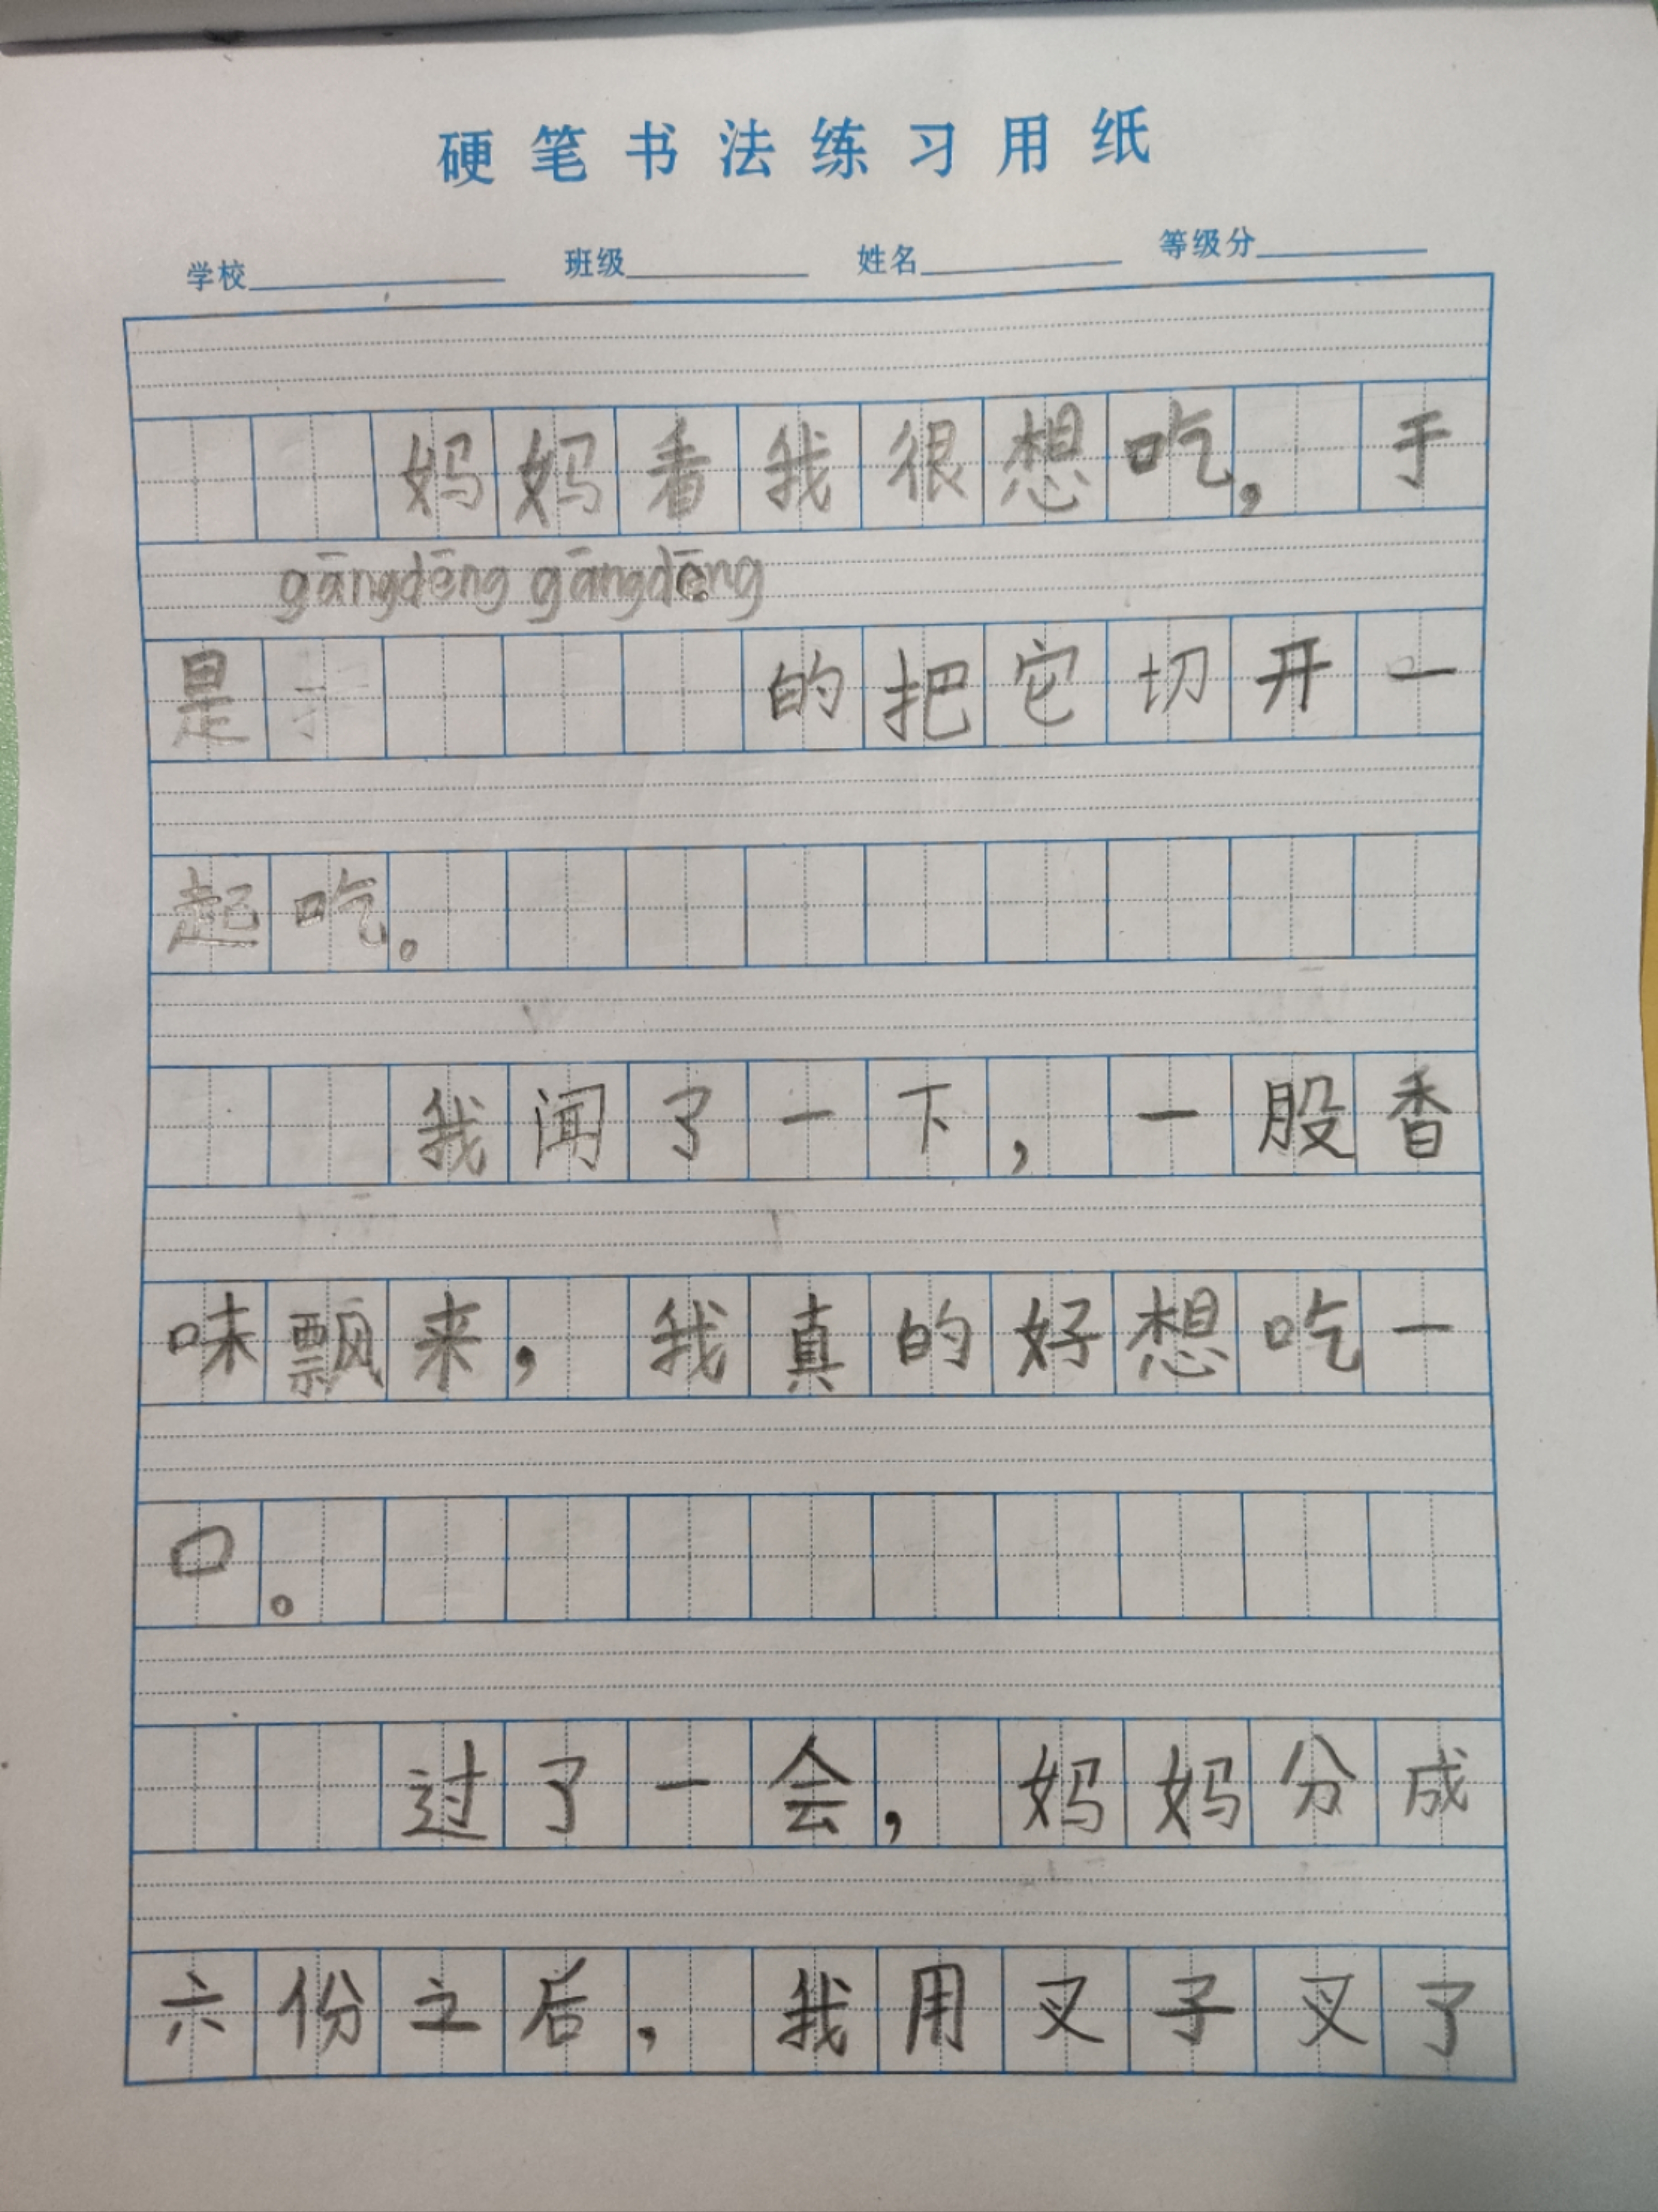 硬笔书法练习用纸
学校 班级 姓名 等级分
妈妈看我很想吃，于
gāngdēng gāngdēng
是 的把它切开一
起吃。
我闻了一下，一股香
味飘来，我真的好想吃一
口。
过了一会，妈妈分成
六份之后，我用叉子叉了